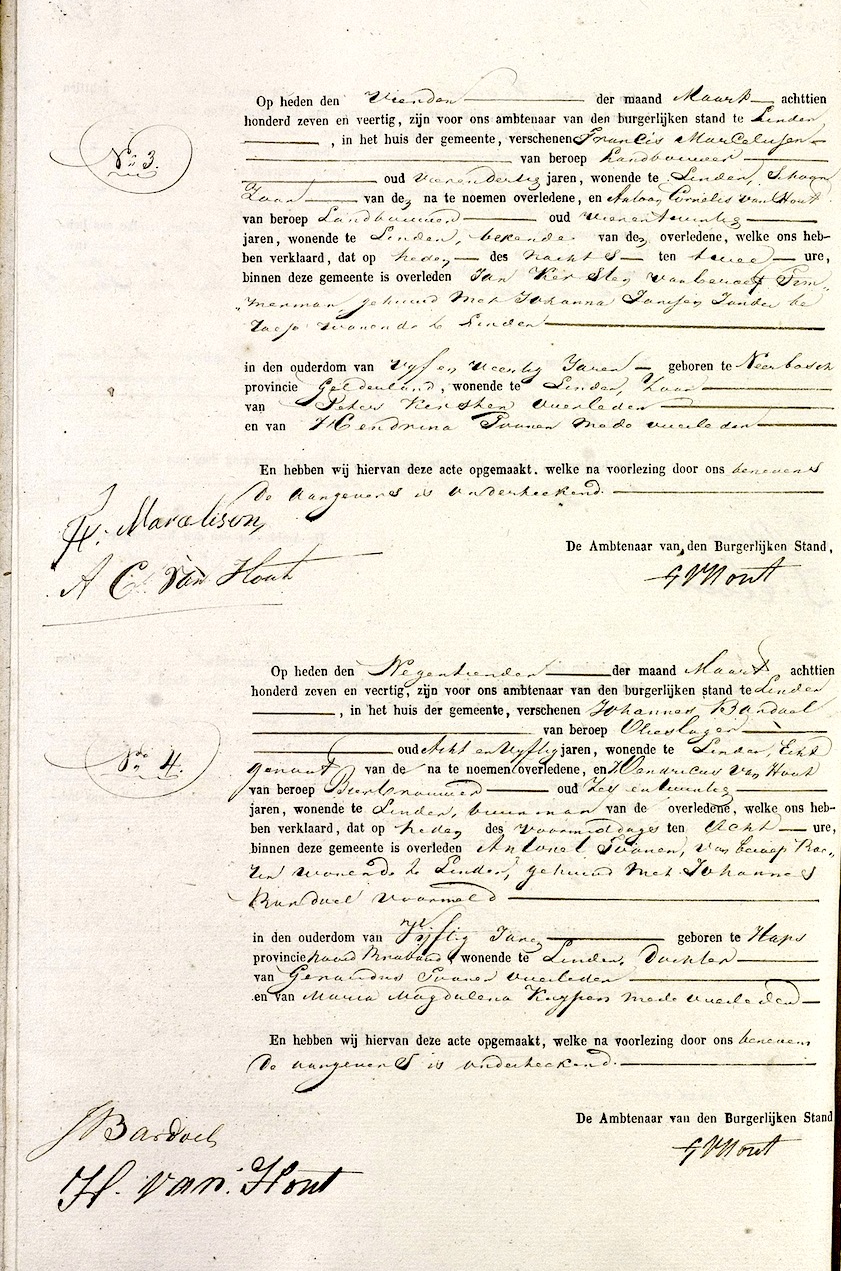 Op heden den Vierden der maand Maart achttien
honderd zeven en veertig, zijn voor ons ambtenaar van den burgerlijken stand te Linden
No 3.
, in het huis der gemeente, verschenen Francis Marcelissen
van beroep Landbouwer
oud vierendertig jaren, wonende te Linden, Schoon
Zoon van de na te noemen overledene, en Antoon Cornelis van Hout
van beroep Landbouwer oud vierentwintig
jaren, wonende te Linden, bekende van de overledene, welke ons heb-
ben verklaard, dat op heden des nachts ten twee ure,
binnen deze gemeente is overleden Jan Kersten van beroep Tim-
merman, gehuwd met Johanna Janssen Zonder be
roep wonende te Linden
in den ouderdom van Vyf en Veertig Jaren geboren te Neerbosch
provincie Gelderland, wonende te Linden, Zoon
van Peter Kersten overleden
en van Hendrina Toonen mede overleden
En hebben wij hiervan deze acte opgemaakt. welke na voorlezing door ons benevens
de aangevers is onderteekend.
F. Marcelissen
De Ambtenaar van den Burgerlijken Stand,
A C van Hout
GVHout
Op heden den Negentienden der maand Maart achttien
honderd zeven en veertig, zijn voor ons ambtenaar van den burgerlijken stand te Linden
, in het huis der gemeente, verschenen Johannes Bardoel
van beroep Olieslager
No 4.
oud Acht en Vyftig jaren, wonende te Linden, Echt
genoot van de na te noemen overledene, en Hendricus van Hout
van beroep oud Zes en twintig
jaren, wonende te Linden, buurman van de overledene, welke ons heb-
ben verklaard, dat op heden des voormiddags ten Acht ure,
binnen deze gemeente is overleden Antonet Toonen, van beroep
wonende te Linden, gehuwd met Johannes
Bardoel voormeld
in den ouderdom van Vyftig Jaren geboren te Haps
provincie Noord Braband, wonende te Linden, Dochter
van Gerardus Toonen overleden
en van Maria Magdalena Kuypers mede overleden
En hebben wij hiervan deze acte opgemaakt, welke na voorlezing door ons benevens
de aangevers is onderteekend.
De Ambtenaar van den Burgerlijken Stand
JBardoel
GVHout
H. van Hout